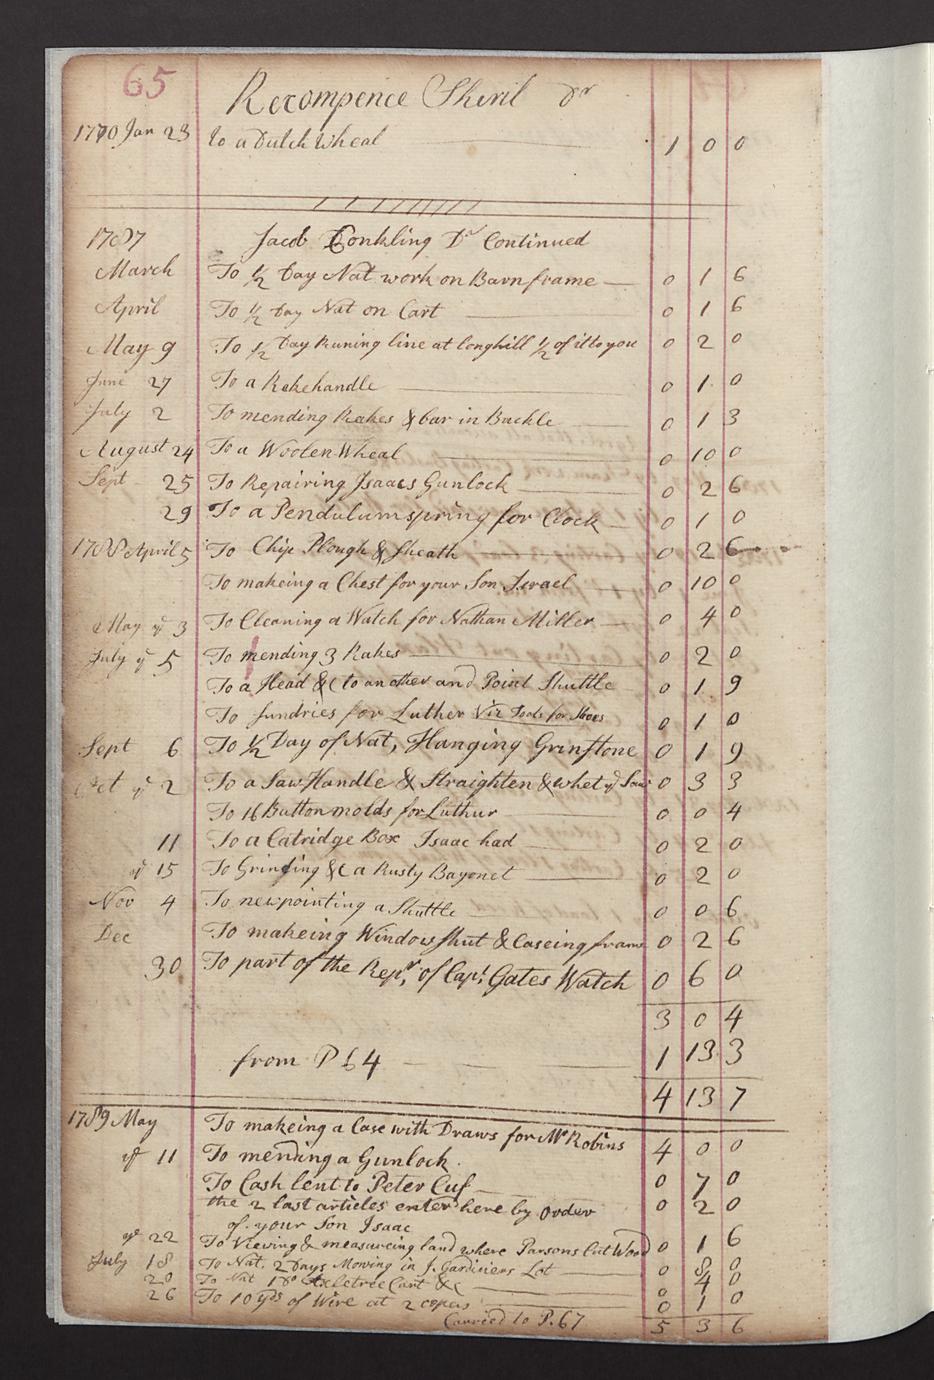 65
Recompence Sheril Dr
1770 Jan 23 to a Dutch Wheal 1 0 0
1787 Jacob Conkling Dr Continued
March To 1/2 Day Nat work on Barnframe 0 1 6
April To 1/2 Day Nat on Cart 0 1 6
May 9 To 1/2 Day Runing line at longhill 1/2 of it to you 0 2 0
June 27 To a Rakehandle 0 1 0
July 2 To mending Rakes & bar in Buckle 0 1 3
August 24 To a Woolen Wheal 0 10 0
Sept 25 To Repairing Isaacs Gunlock 0 2 6
29 To a Pendulum spring for Clock 0 1 0
1788 April 5 To Chip Plough & Sheath 0 2 6
To makeing a Chest for your Son Israel 0 10 0
May ye 3 To Cleaning a Watch for Nathan Miller 0 4 0
July ye 5 To mending 3 Rakes 0 2 0
To a Head &c to another and Point Shuttle 0 1 9
To Sundries for Luther Viz Tools for Shoes 0 1 0
Sept 6 To 1/2 Day of Nat, Hanging Grinstone 0 1 9
Oct ye 2 To a Saw Handle & Straighten & whet ye Saw 0 3 3
To 16 Button molds for Luthur 0 0 4
11 To a Catridge Box Isaac had 0 2 0
ye 15 To Grinding &c a Rusty Bayonet 0 2 0
Nov 4 To newpointing a Shuttle 0 0 6
Dec To makeing Window Shut & Caseing frame 0 2 6
30 To part of the Repr, of Capt Gates Watch 0 6 0
3 0 4
from P 64 1 13 3
4 13 7
1789 May To makeing a Case with Draws for Mr Robins 4 0 0
ye 11 To mending a Gunlock.
To Cash lent to Peter Cuf 0 7 0
the 2 last articles enter here by order 0 2 0
of your Son Isaac
ye 22 To Viewing & measureing land where Parsons Cut Wood 0 1 6
July 18 To Nat. 2 Days Mowing in J. Gardiners Lot 0 8 0
20 To Nat 1 Do Axletree Cart &c 0 4 0
26 To 10 yds of Wire at 2 copers 0 1 0
Carried to P. 67 5 3 6